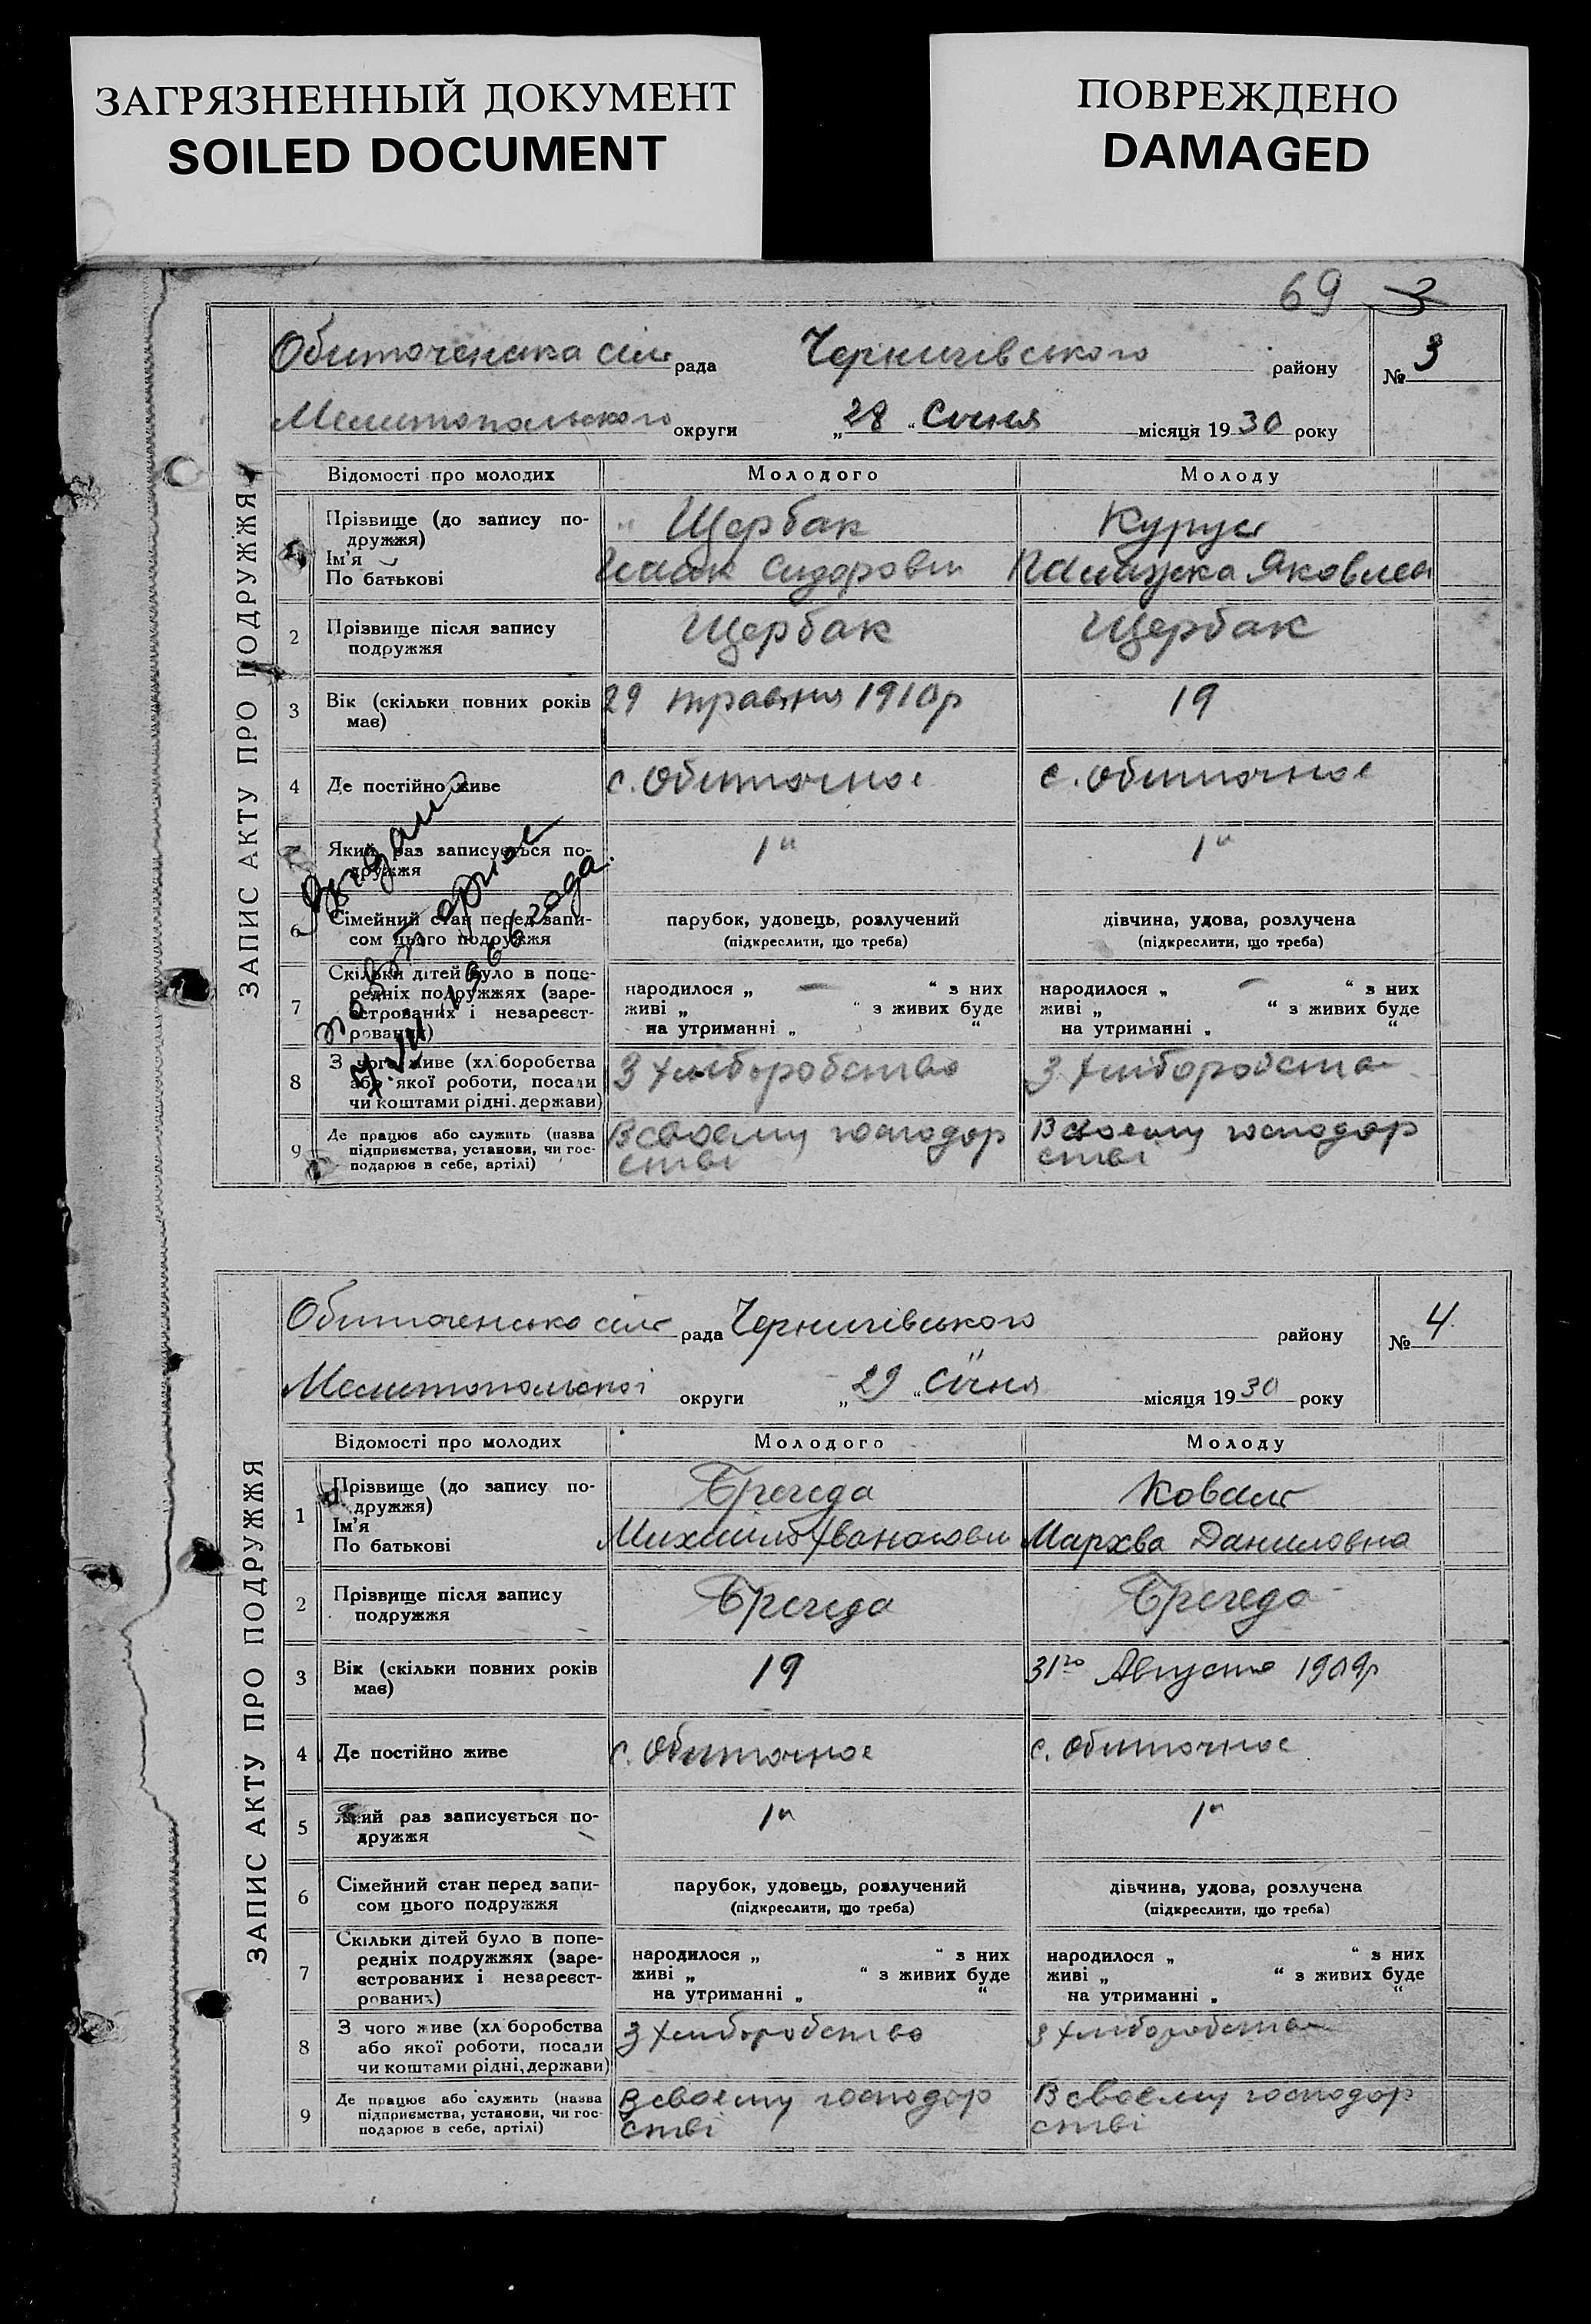 ЗАГРЯЗНЕННЫЙ ДОКУМЕНТ
SOILED DOCUMENT
ПОВРЕЖДЕНО
DAMAGED
69 3
ЗАПИС АКТУ ПРО ПОДРУЖЖЯ
Обиточенська сіль рада Чернигівського району № 3
Мелитопольского округи „28“ Січня місяця 1930 року
Відомості про молодих Молодого Молоду
Прізвище (до запису по- Щербак
дружжя)
Ім'я Сидорови Яковлев
По батькові
2 Прізвище після запису Щербак Щербак
подружжя
3 Вік (скільки повних років 29 травня 1910р 19
має)
4 Де постійно живе с. Обиточное с. Обиточное
Який раз записується по- 1й 1й
дружжя
6 Сімейний стан перед запи- парубок, удовець, розлучений дівчина, удова, розлучена
сом цього подружжя (підкреслити, що треба) (підкреслити, що треба)
7 Скільки дітей було в попе-
редніх подружжях (заре- народилося „ — “ з них народилося „ — “ з них
єстрованих і незареєст- живі „ “ з живих буде живі „ “ з живих буде
рованих) на утриманні „ “ на утриманні „ “
8 З чого живе (хліборобства З хлиборобство З хлиборобства
або якої роботи, посади
чи коштами рідні, держави)
9 Де працює або служить (назва В своему господор В своему господор
підприємства, установи, чи гос- стві стві
подарює в себе, артілі)
повторное
1966 года.
ЗАПИС АКТУ ПРО ПОДРУЖЖЯ
Обиточенсько сіль рада Чернигівського району № 4
Мелитопольскої округи „29“ Січня місяця 1930 року
Відомості про молодих Молодого Молоду
1 Прізвище (до запису по- Бречеда Коваль
дружжя)
Ім'я Михайло Мархва Даниловна
По батькові
2 Прізвище після запису Бречеда Бречеда
подружжя
3 Вік (скільки повних років 19 31го Августа 1909р
має)
4 Де постійно живе с. Обиточное с. Обиточное
5 Який раз записується по- 1й 1й
дружжя
6 Сімейний стан перед запи- парубок, удовець, розлучений дівчина, удова, розлучена
сом цього подружжя (підкреслити, що треба) (підкреслити, що треба)
7 Скільки дітей було в попе-
редніх подружжях (заре- народилося „ “ з них народилося „ “ з них
єстрованих і незареєст- живі „ “ з живих буде живі „ “ з живих буде
рованих) на утриманні „ “ на утриманні „ “
8 З чого живе (хліборобства З хлиборобство З хлиборобства
або якої роботи, посади
чи коштами рідні, держави)
9 Де працює або служить (назва В своему господор В своему господор
підприємства, установи, чи гос- стві стві
подарює в себе, артілі)